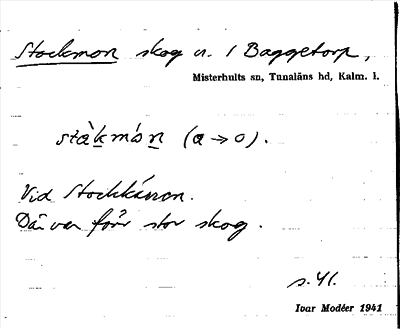 Stockmon skog n. 1 Baggetorp,
Misterhults sn, Tunaläns hd, Kalm. l.
stàkmó̀n (a → o).
Vid Stockkärren.
Där var förr stor skog.
s. 41.
Ivar Modéer 1941